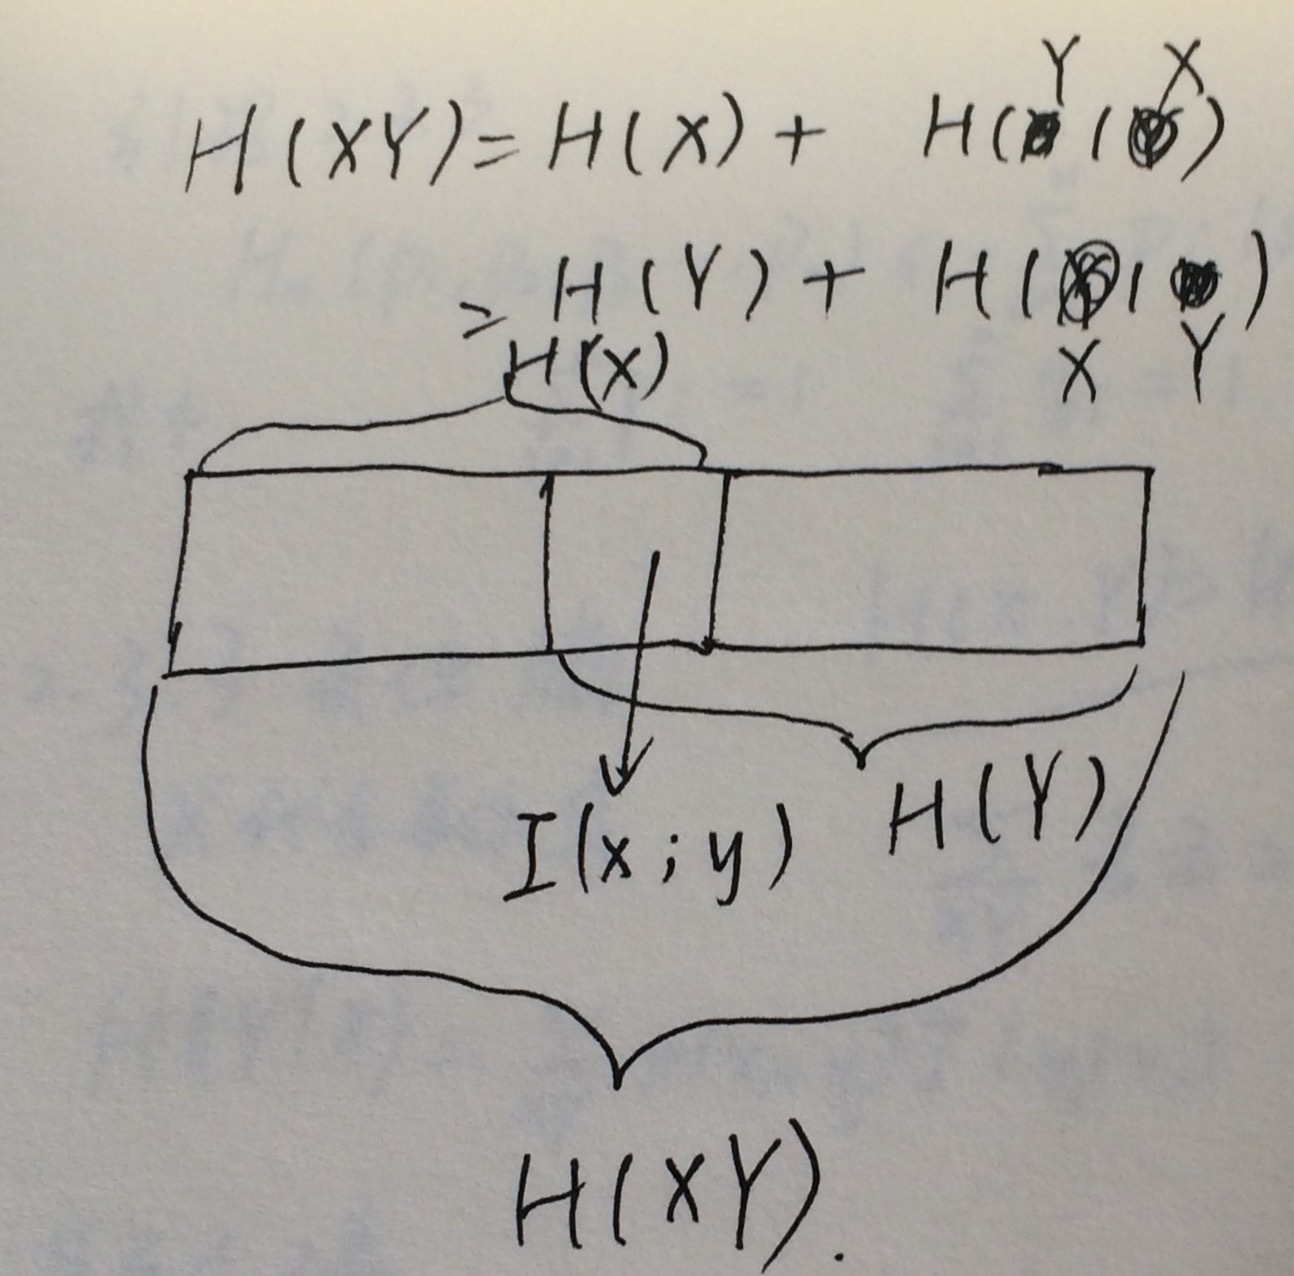 H(XY) = H(X) + H(Y|X)
= H(Y) + H(X|Y)
H(X)
I(x;y)
H(Y)
H(XY).